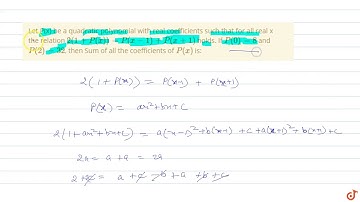 Let P(x) be a quadratic polynomial with real coefficients such that for all real x
the relation 2(1 + P(x)) = P(x − 1) + P(x + 1) holds. If P(0) = 8 and
P(2) = 32, then Sum of all the coefficients of P(x) is:
2(1+P(x)) = P(x-1) + P(x+1)
P(x) = ax²+bx+c
2(1+ax²+bx+c) = a(x-1)²+b(x-1)+c+a(x+1)²+b(x+1)+c
2 = a+a = 2a